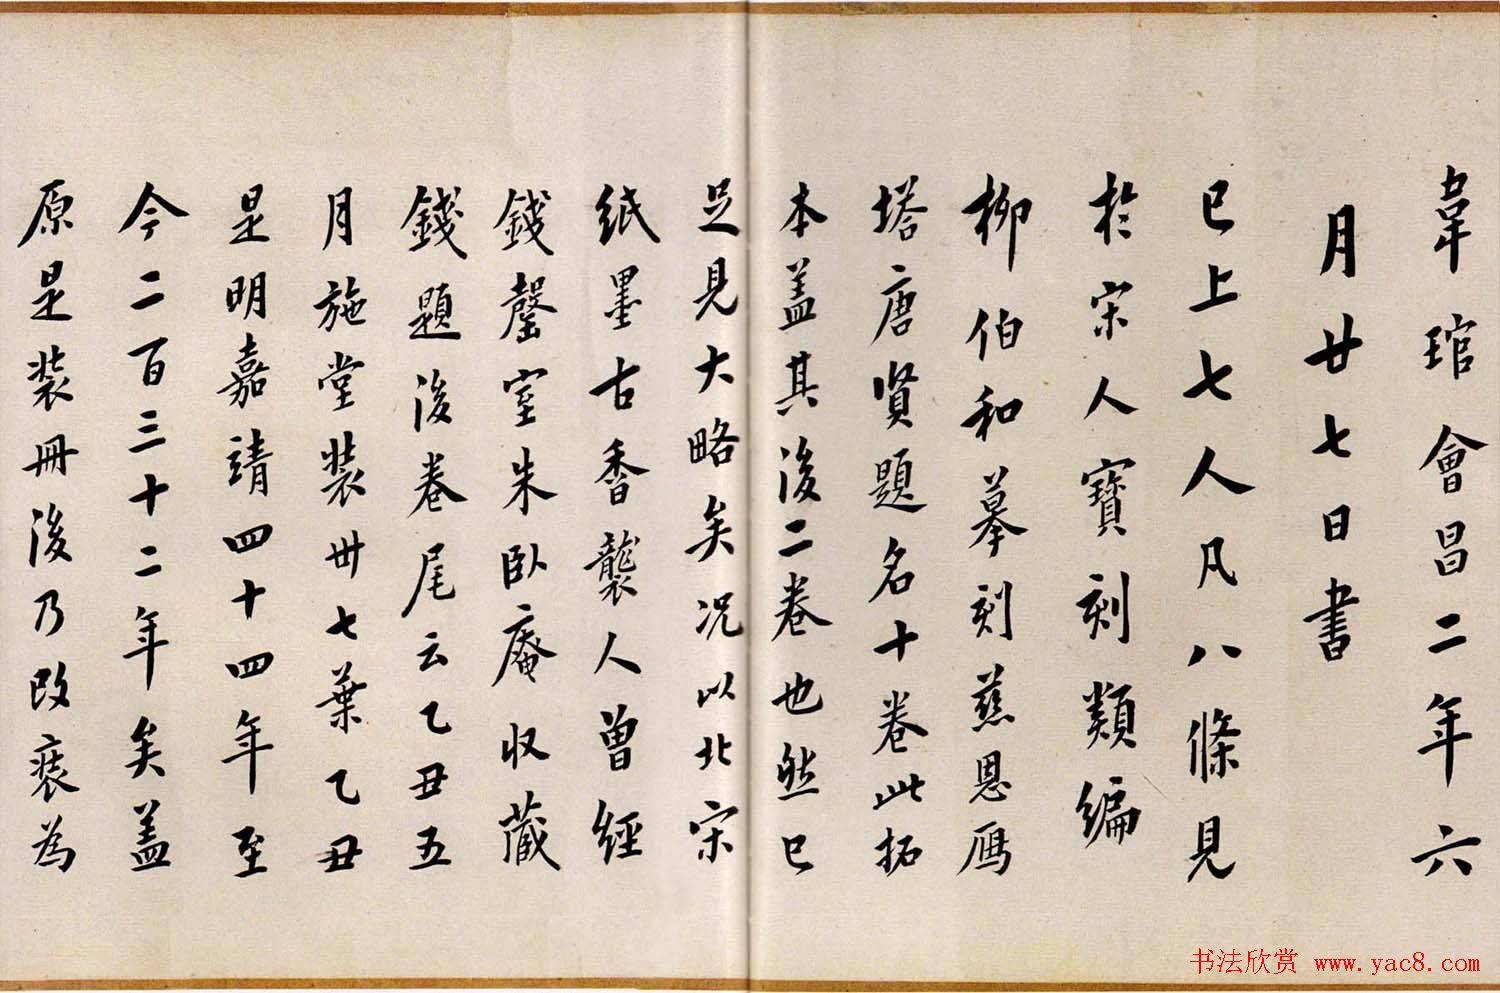 韋琯會昌二年六
月廿七日書
已上七人凡八條見
於宋人寶刻類編
柳伯和摹刻慈恩雁
塔唐賢題名十卷此拓
本盖其後二卷也然已
足見大略矣况以北宋
紙墨古香襲人曾經
錢罄室朱臥庵收藏
錢題後卷尾云乙丑五
月施堂装卅七葉乙丑
是明嘉靖四十四年至
今二百三十二年矣盖
原是装冊後乃改裱為
书法欣赏 www.yac8.com